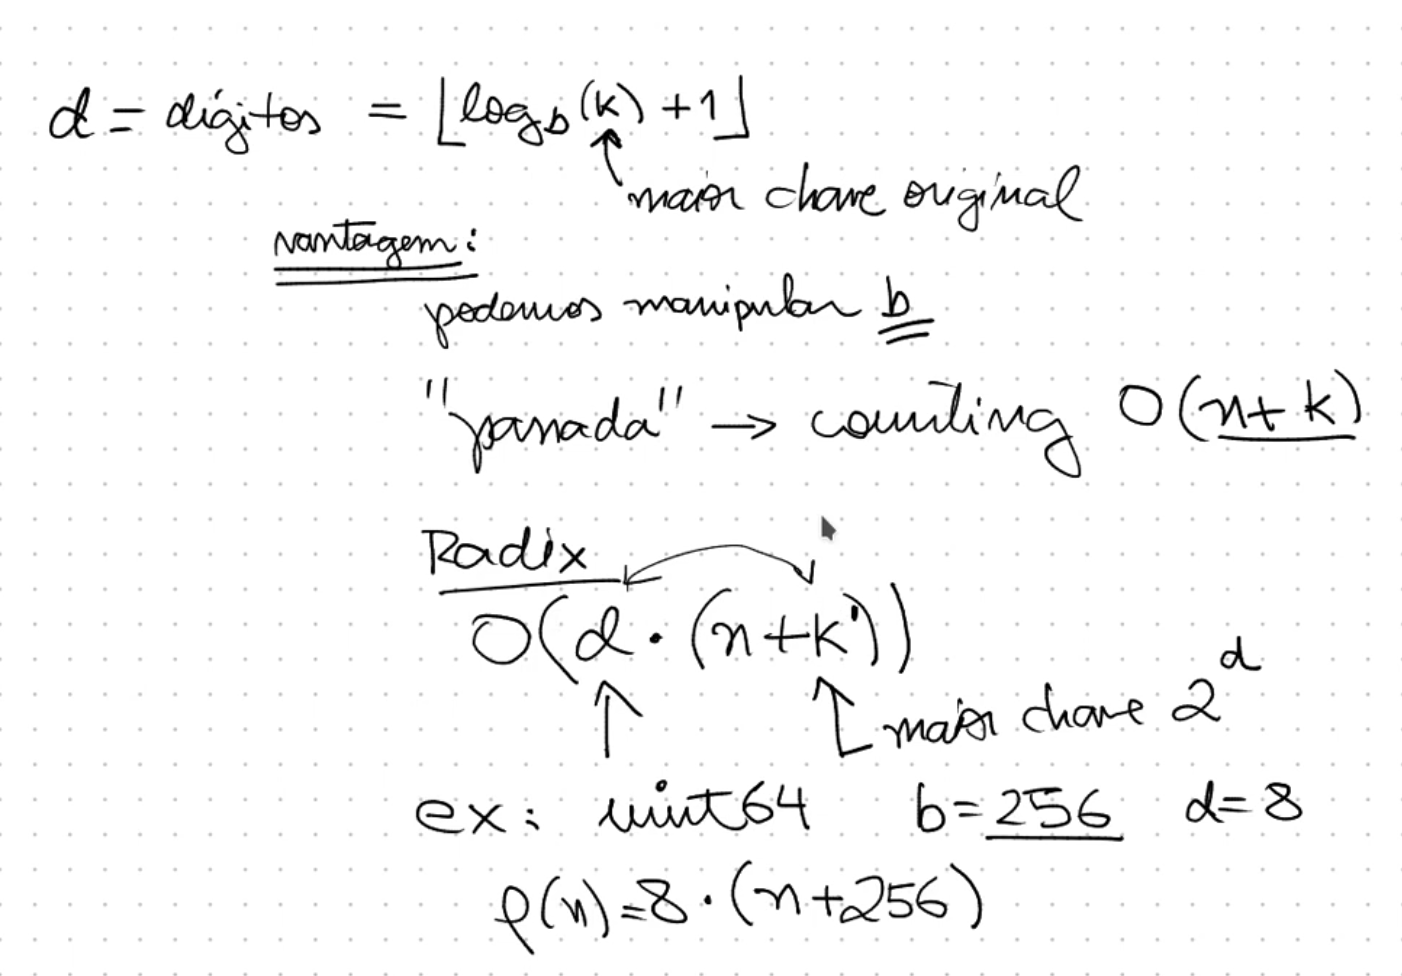 d = dígitos = ⌊log_b(k) + 1⌋
maior chave original
vantagem:
podemos manipular b
"passada" → counting O(n + k)
Radix
O(d · (n + k'))
maior chave 2^d
ex: uint64 b = 256 d = 8
f(n) = 8 · (n + 256)